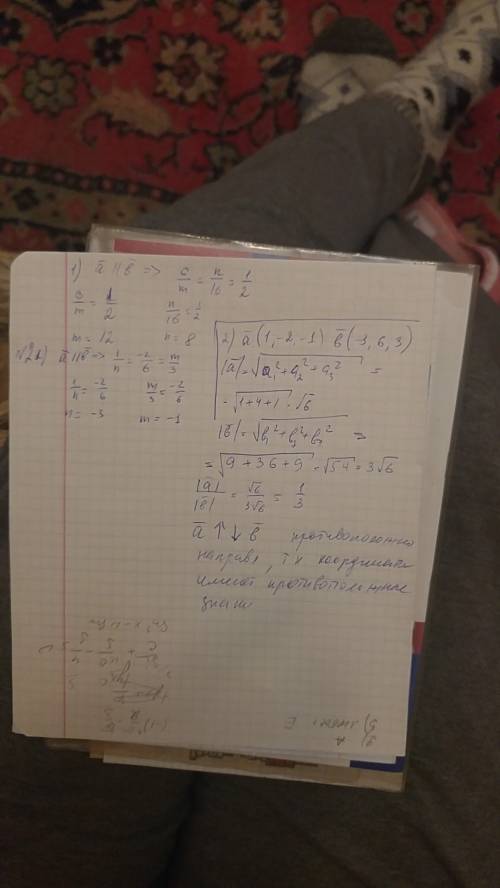 1) a̅ || b̅ => 6/m = n/16 = 1/2
6/m = 1/2 n/16 = 1/2
m = 12 n = 8
a̅ || b̅ => 1/n = -2/6 = m/3
1/n = -2/6 m/3 = -2/6
n = -3 m = -1
2) a̅ (1, -2, -1) b̅ (-3, 6, 3)
|a̅| = √(a₁² + a₂² + a₃²) =
= √(1+4+1) = √6
|b̅| = √(b₁² + b₂² + b₃²) =
= √(9 + 36 + 9) = √54 = 3√6
|a̅|/|b̅| = √6/3√6 = 1/3
a̅ ↑ ↓ b̅ противоположно
направл, т к координаты
имеют противоположные
знаки